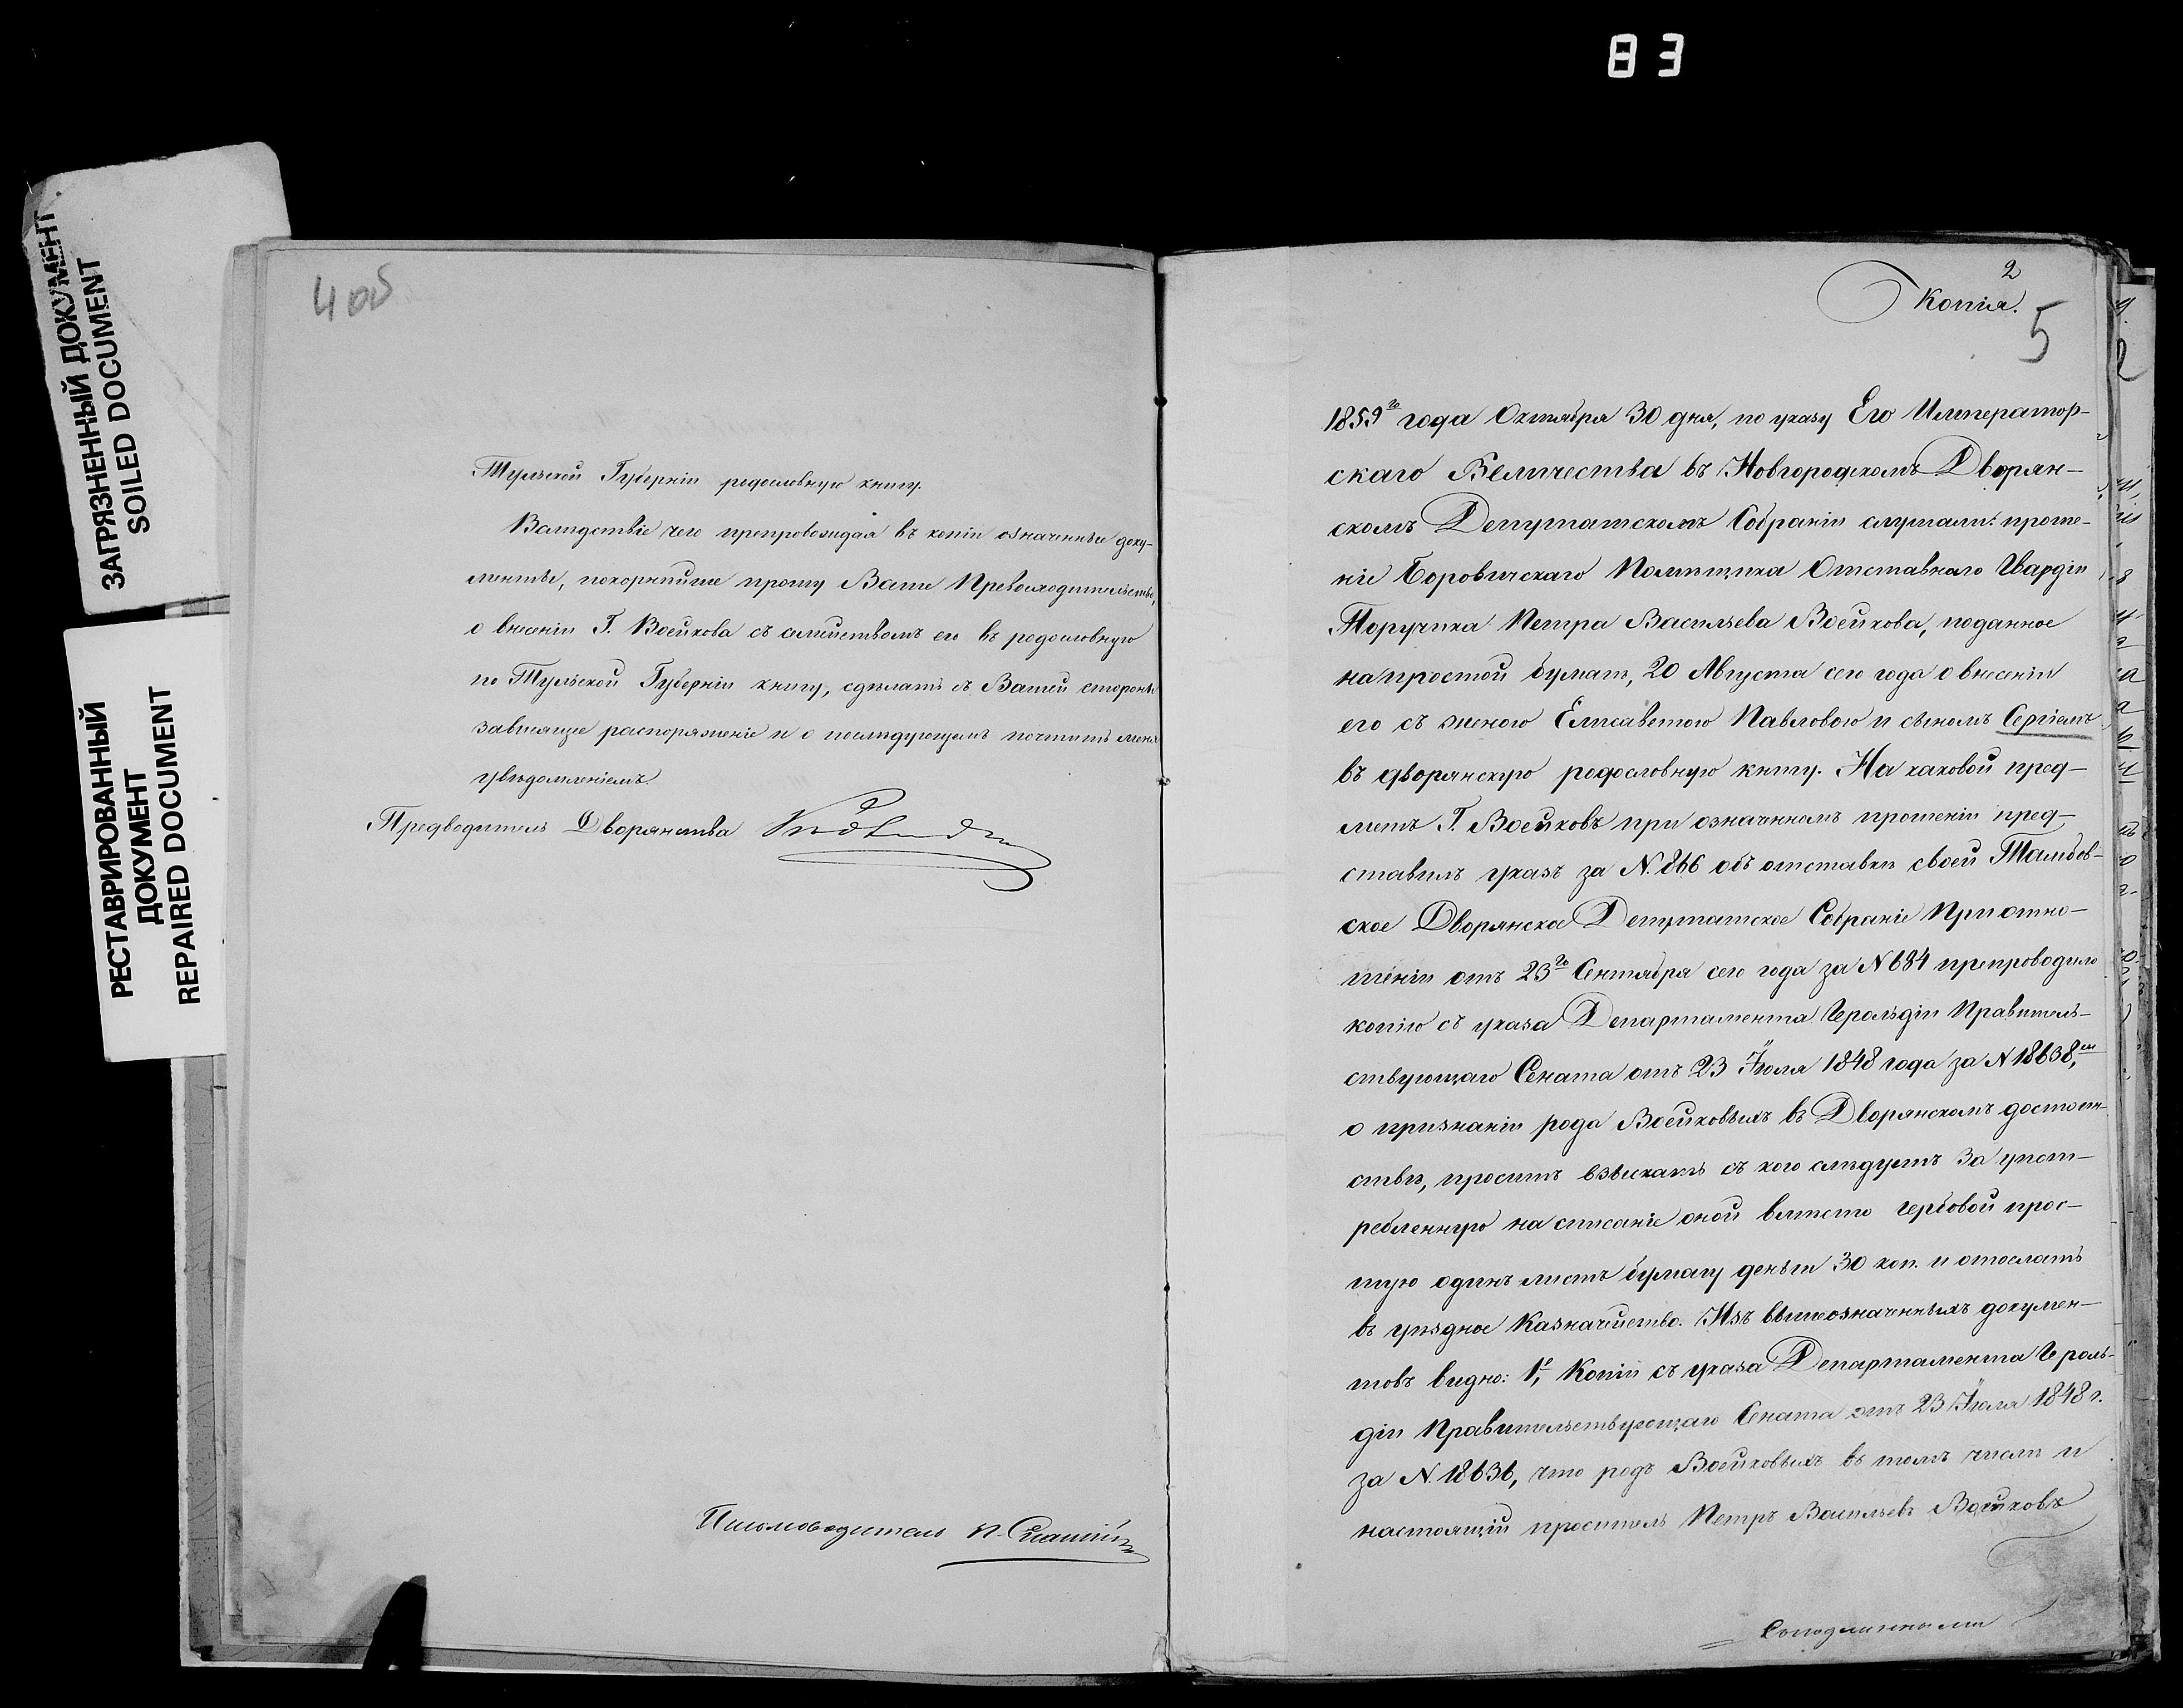 83
ЗАГРЯЗНЕННЫЙ ДОКУМЕНТ
SOILED DOCUMENT
РЕСТАВРИРОВАННЫЙ
ДОКУМЕНТ
REPAIRED DOCUMENT
4 об
Тульской Губерніи родословную книгу.
Вслѣдствіе чего препровождая въ копіи означенные доку-
менты, покорнѣйше прошу Ваше Превосходительство,
о внесеніи Г. Воейкова съ семействомъ его въ родословную
по Тульской Губерніи книгу, сдѣлать съ Вашей стороны
зависящее распоряженіе и о послѣдующемъ почтить меня
увѣдомленіемъ.
Предводитель Дворянства
Письмоводитель П.
2
Копія.
5
1859го года Октября 30 дня, по указу Его Император-
скаго Величества въ Новгородскомъ Дворян-
скомъ Депутатскомъ Собраніи слушали: проше-
ніе Боровичскаго Помѣщика Отставнаго Гвардіи
Поручика Петра Васильева Воейкова, поданное
на простой бумагѣ, 20 Августа сего года о внесеніи
его съ женою Елисаветою Павловою и сыномъ Сергіемъ
въ дворянскую родословную книгу. На каковой пред-
метъ Г. Воейковъ при означенномъ прошеніи пред-
ставилъ указъ за N. 866 объ отставкѣ своей Тамбов-
ское Дворянское Депутатское Собраніе При отно-
шеніи отъ 23го Сентября сего года за N 684 препроводило
копію съ указа Департамента Герольдіи Правитель-
ствующаго Сената отъ 23 Іюля 1848 года за N 18638,мъ
о признаніи рода Воейковыхъ въ Дворянскомъ достоин-
ствѣ, проситъ взыскать съ кого слѣдуетъ за упот-
ребленную на списаніе оной вмѣсто гербовой прос-
тую одинъ листъ бумагу деньги 30 коп. и отослать
въ уѣздное Казначейство. Изъ вышеозначенныхъ докумен-
товъ видно: 1е, Копіи съ указа Департамента Героль-
діи Правительствующаго Сената отъ 23 Іюля 1848 г.
за N. 18636, что родъ Воейковыхъ въ томъ числѣ и
настоящій проситель Петръ Васильевъ Воейковъ